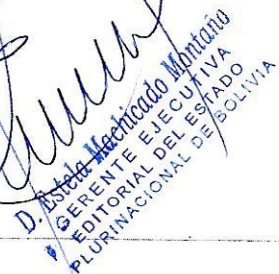 D. Estela Machicado Montaño
GERENTE EJECUTIVA
EDITORIAL DEL ESTADO
PLURINACIONAL DE BOLIVIA